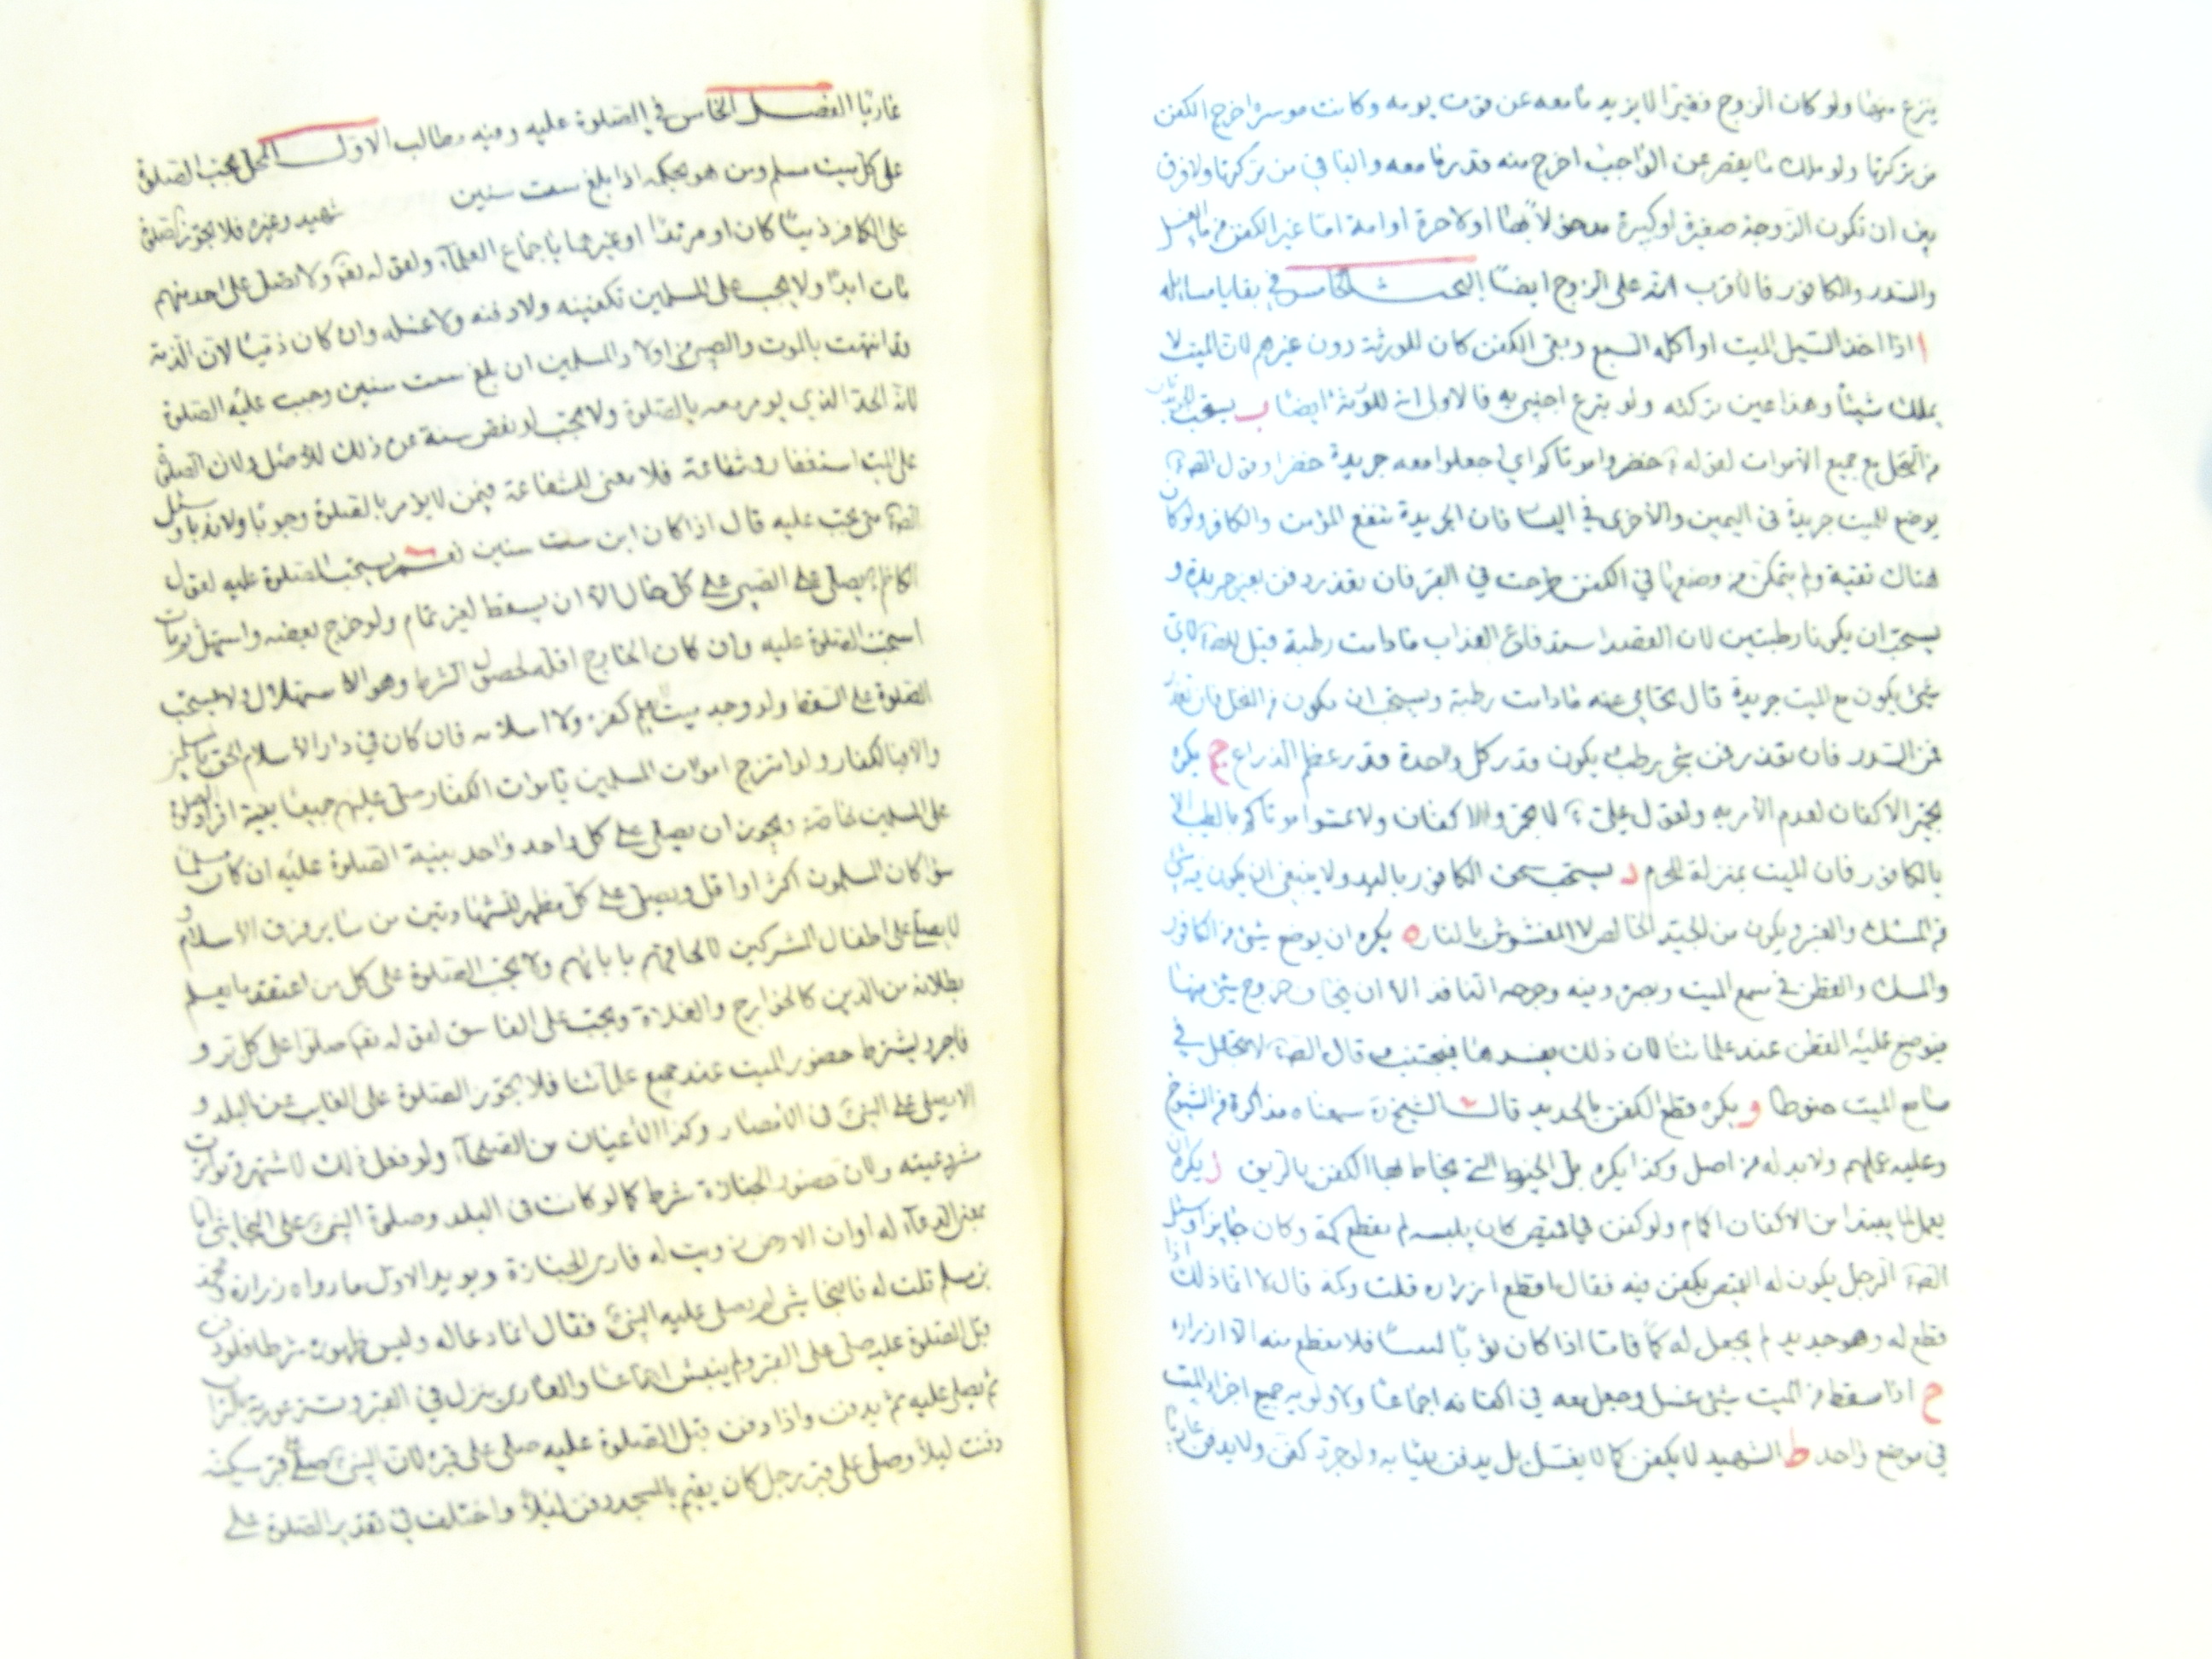 ينزع منها ولو كان الزوج فقيرا لا يزيد ما معه عن قوت يومه وكانت موسرة اخرج الكفن
من تركتها ولو ملك ما يقصر عن الواجب اخرج منه قدر ما معه والباقي من تركتها ولا فرق
بين ان تكون الزوجة صغيرة او كبيرة مدخولا بها او لا حرة او امة اما غير الكفن من
والسدر والكافور فالاقرب انه على الزوج ايضا البحث الخامس في بقايا مسائله
ا اذا اخذ السيل الميت او اكله السبع وبقي الكفن كان للورثة دون غيرهم لان الميت لا
يملك شيئا وهذا عين تركته ولو تبرع اجنبي به فالاولى انه للورثة ايضا ب يستحب
من النخل مع جميع الاموات لقوله ع خضروا موتاكم اي اجعلوا معه جريدة خضرا وقول الص ع
يوضع للميت جريدة في اليمين والاخرى في اليسا فان الجريدة تنفع المؤمن والكافر ولو كان
هناك تقية ولم يتمكن من وضعها في الكفن طرحت في القبر فان تعذر دفن بغير جريدة و
يستحب ان يكونا رطبتين لان القصد استدفاع العذاب ما دامت رطبة قيل للص ع لاي
شئ يكون مع الميت جريدة قال يتجافى عنه ما دامت رطبة ويستحب ان يكون من النخل فان تعذر
فمن السدر فان تعذر فمن شجر رطب يكون قدر كل واحدة قدر عظم الذراع ج يكره
تجمير الاكفان لعدم الامر به ولقول علي ع لا تجمروا الاكفان ولا تمسوا موتاكم بالطيب الا
بالكافور فان الميت بمنزلة المحرم د يستحب سحق الكافور باليد ولا ينبغي ان يكون فيه شئ
من المسك والعنبر ويكون من الجيد الخالص لا المغشوش بالنار ه يكره ان يوضع شئ من الكافور
والمسك والقطن في سمع الميت وبصره وفيه وجرحه النافذ الا ان يخاف خروج شئ منها
فيوضع عليه القطن عند علمائنا لان ذلك يفسدها فيجتنب قال الص ع لا تجعل في
مسامع الميت حنوطا و يكره قطع الكفن بالحديد قال الشيخ ره سمعناه مذاكرة من الشيوخ
وعليه عملهم ولا بد له من اصل وكذا يكره بل الخيوط التي يخاط بها الكفن بالريق ز يكره ان
يعمل لما يبتدأ من الاكفان اكمام ولو كفن في قميص كان يلبسه لم يقطع كمه وكان جايزا وسئل
الص ع الرجل يكون له القميص يكفن فيه فقال اقطع ازراره قلت وكمه قال لا انما ذلك اذا
قطع له وهو جديد لم يجعل له كما فاما اذا كان ثوبا لبيسا فلا يقطع منه الا ازراره
ح اذا سقط من الميت شئ غسل وجعل معه في اكفانه اجماعا ولاولويه جميع اجزاء الميت
في موضع واحد ط الشهيد لا يكفن كما لا يغسل بل يدفن بثيابه ولو جرد كفن ولا يدفن عاريا
عاريا الفصل الخامس في الصلوة عليه وفيه مطالب الاول المحل يجب الصلوة
على كل ميت مسلم ومن هو بحكمه اذا بلغ ست سنين شهيد وغيره فلا يجوز الصلوة
على الكافر ذميا كان او مرتدا او غيرهما باجماع العلماء ولقوله تعه ولا تصل على احد منهم
مات ابدا ولا يجب على المسلمين تكفينه ولا دفنه ولا غسله وان كان ذميا لان الذمة
قد انتهت بالموت والصبي من اولاد المسلمين ان بلغ ست سنين وجب عليه الصلوة
لانه الحد الذي يومر معه بالصلوة ولا تجب لو نقص سنه عن ذلك للاصل ولان الصلوة
على الميت استغفار وشفاعة فلا معنى للشفاعة فيمن لا يؤمر بالصلوة وجوبا ولا ندبا وسئل
الص ع متى يجب عليه قال اذا كان ابن ست سنين نعم يستحب الصلوة عليه لقول
الكاظم ع يصلى على الصبي على كل حال الا ان يسقط لغير تمام ولو خرج بعضه واستهل ثم مات
استحب الصلوة عليه وان كان الخارج اقله لحصول الشرط وهو الاستهلال ولا يستحب
الصلوة على السقط ولو وجد ميت لا يعلم كفره ولا اسلامه فان كان في دار الاسلام الحق بالمسلمين
والا فبالكفار ولو امتزج اموات المسلمين باموات الكفار صلى عليهم جميعا بنية افراد الصلوة
على المسلمين خاصة ويجوز ان يصلي على كل واحد واحد بنية الصلوة عليه ان كان مسلما
سواء كان المسلمون اكثر او اقل ويصلى على كل مظهر للشهادتين من ساير فرق الاسلام و
لا يصلى على اطفال المشركين لالحاقهم بابائهم ولا تجب الصلوة على كل من اعتقد ما يعلم
بطلانه من الدين كالخوارج والغلاة وتجب على الفاسق لقوله تعه صلوا على كل بر و
فاجر ويشترط حضور الميت عند جميع علمائنا فلا تجوز الصلوة على الغايب عن البلد و
الا يصلى على النبي ص في الامصار وكذا الاعيان من الصلحاء ولو فعل ذلك لاشتهر وتواترت
مشروعيته ولان حضور الجنازة شرط كما لو كانت في البلد وصلوة النبي ص على النجاشي اما
بمعنى الدعاء له او ان الارض زويت له فاري الجنازة ويؤيد الاول ما رواه زرارة ومحمد
بن مسلم قلت له فالنجاشي لم يصل عليه النبي ص فقال انما دعا له وليس ظهوره شرطا فلو دفن
قبل الصلوة عليه صلى على القبر ولم ينبش اجماعا والعاري ينزل في القبر وتستر عورته بالتراب
ثم يصلى عليه ثم يدفن واذا دفن قبل الصلوة عليه صلي على قبره لان النبي ص صلى على قبر مسكينة
دفنت ليلا وصلى على قبر رجل كان يقيم بالمسجد دفن ليلا واختلف في تقدير الصلوة على